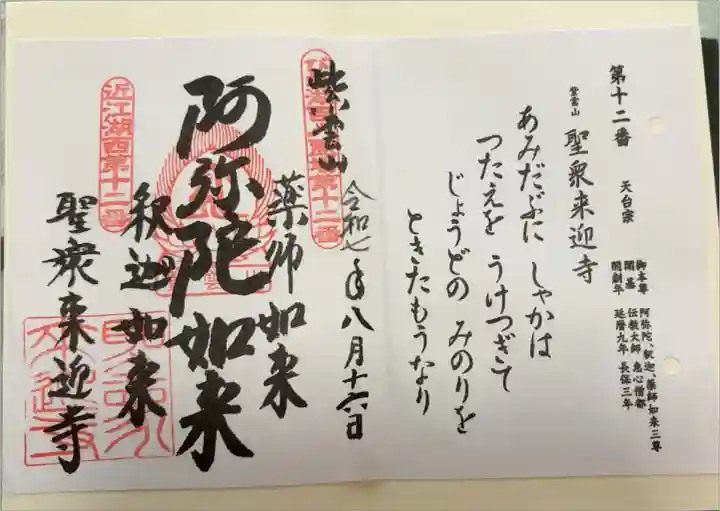 第十二番 天台宗
紫雲山 聖衆来迎寺
御本尊 阿弥陀、釈迦、薬師如来三尊
開基 伝教大師 恵心僧都
開創年 延暦九年 長保三年
あみだぶに しゃかは
つたえを うけつぎて
じょうどの みのりを
ときたもうなり
紫雲山
令和七年八月十六日
薬師如来
阿弥陀如来
釈迦如来
聖衆来迎寺
近江湖西第十二番